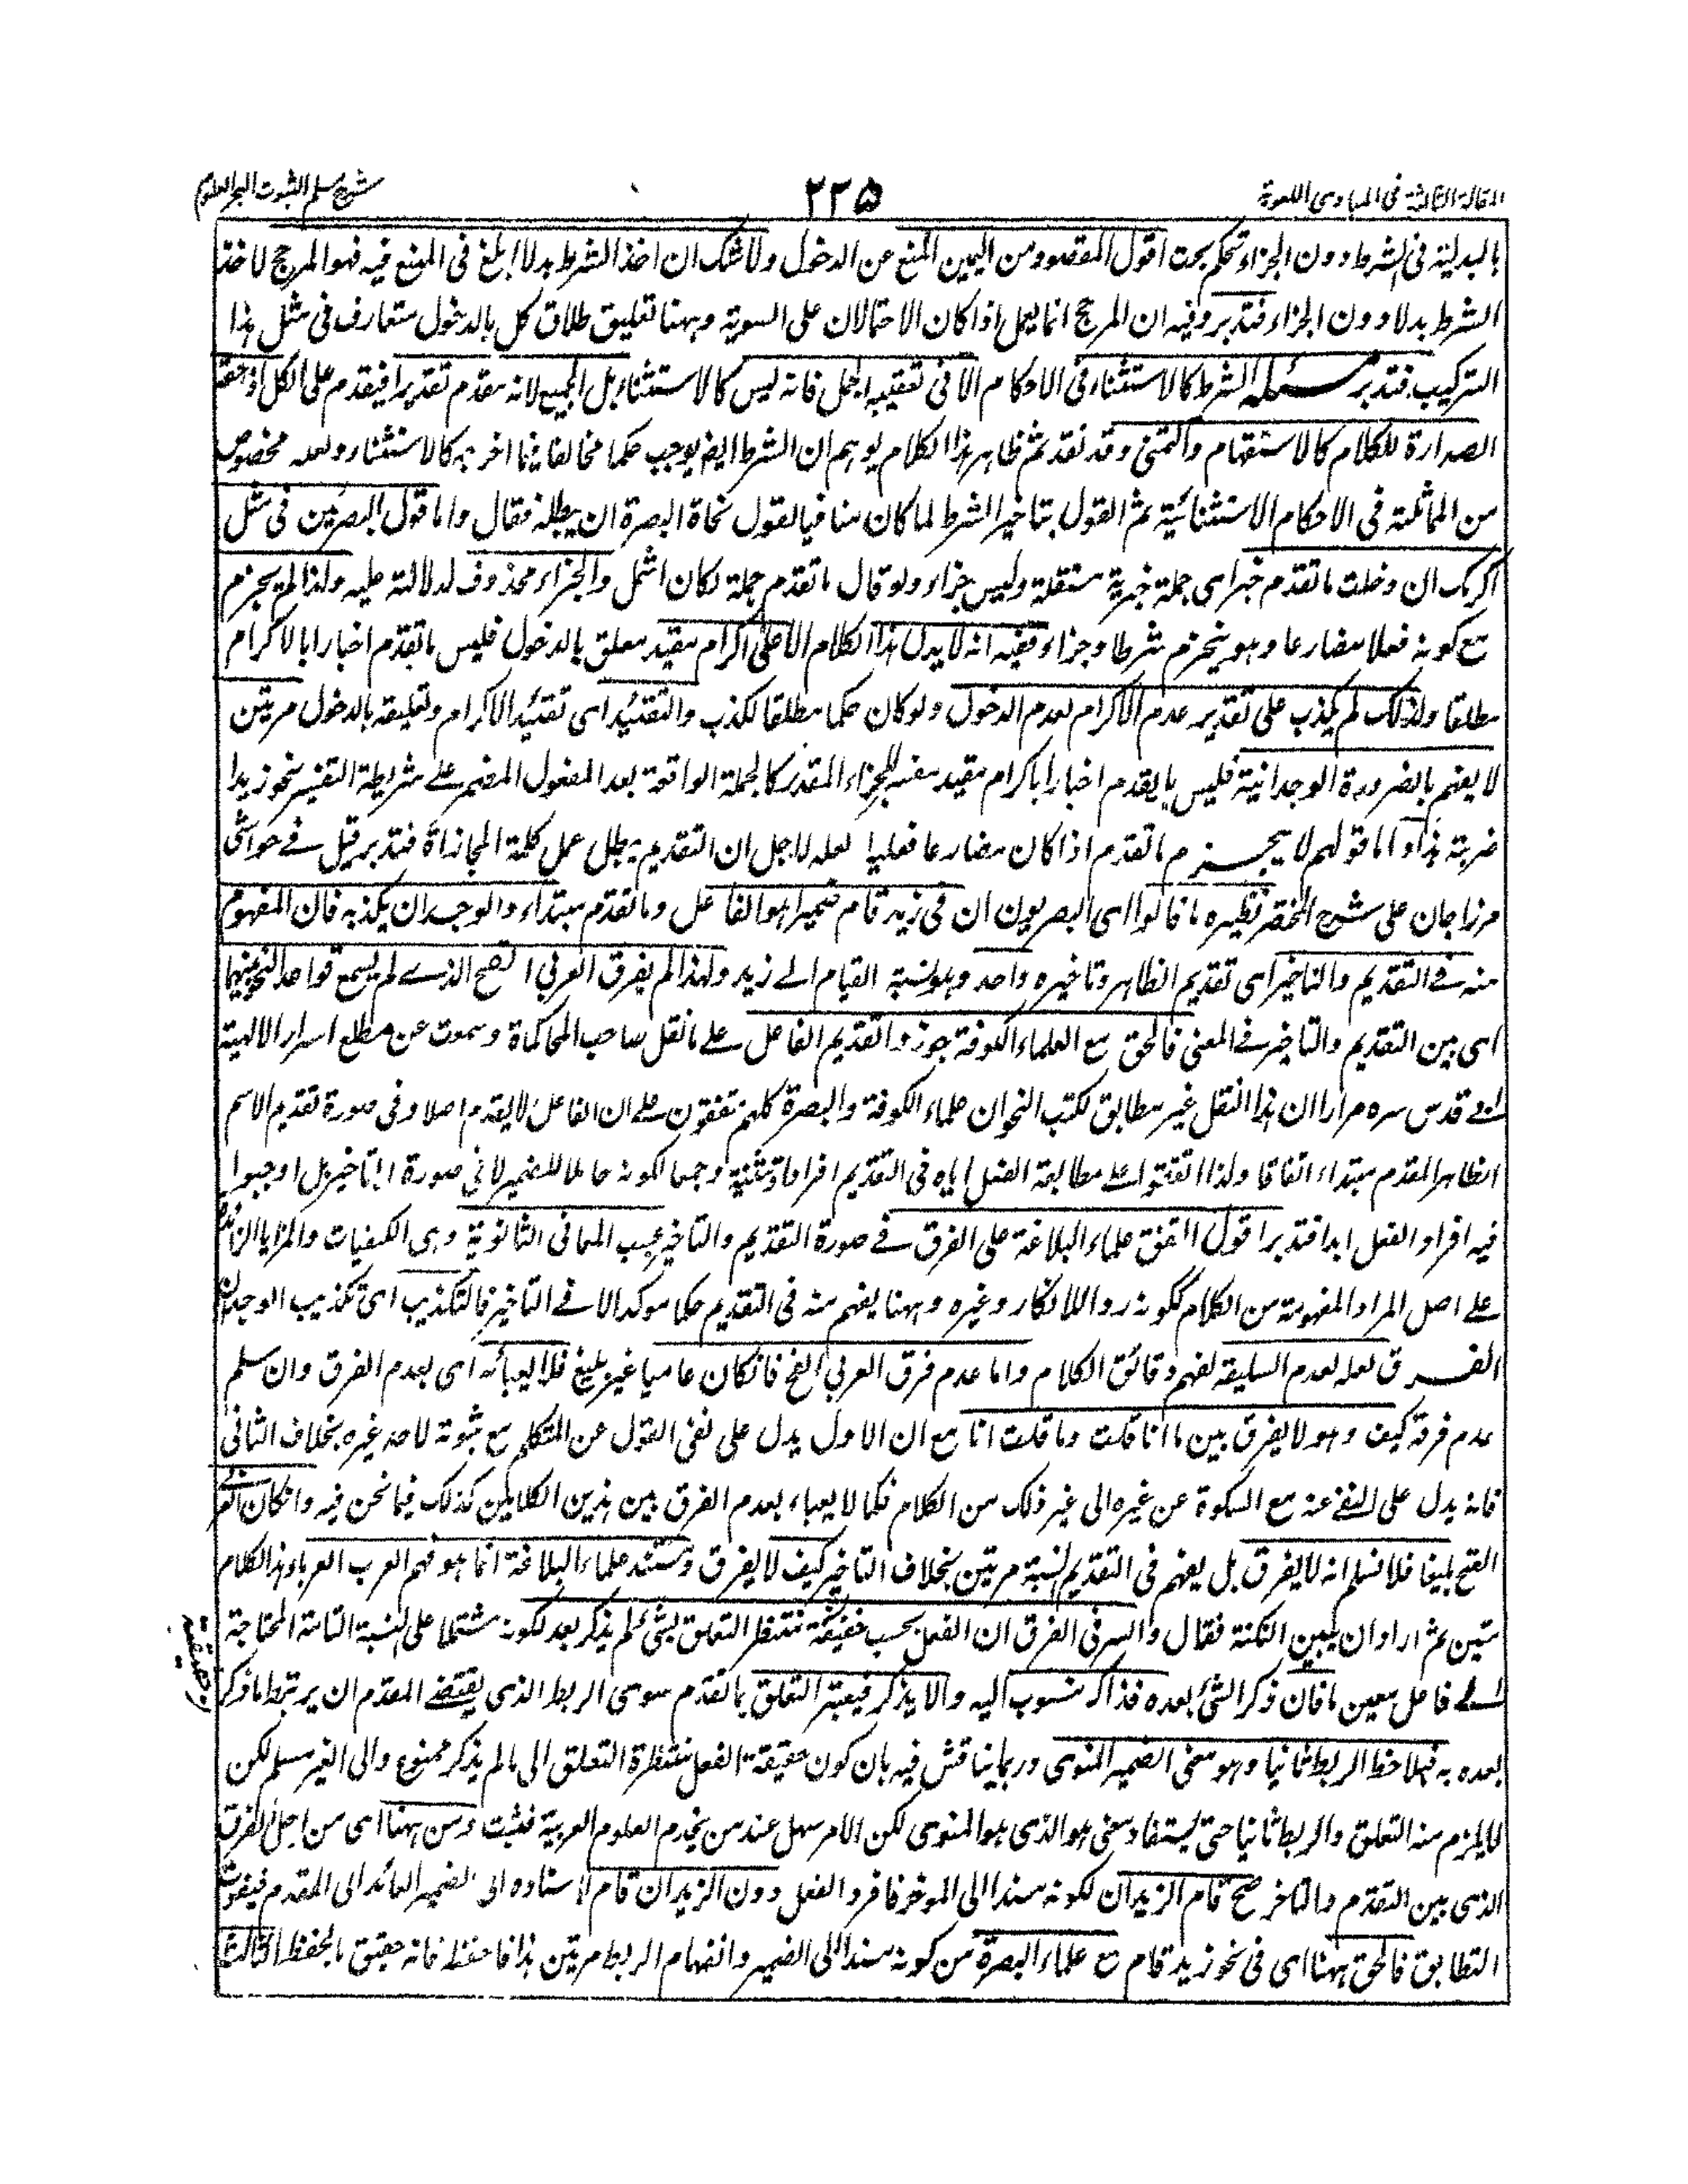 المقالة الثالثة فى المبادى اللغوية ٢٢٥ شرح مسلم الثبوت لبحر العلوم
بالبدلية فى الشرط دون الجزاء تحكم بحت اقول المقصود من اليمين المنع عن الدخول ولا شك ان اخذ الشرط بدلا ابلغ فى المنع فيه فهو المرجح لاخذ
الشرط بدلا دون الجزاء فتدبر وفيه ان المرجح انما يعمل اذا كان الاحتمالان على السوية وههنا تعليق طلاق كل بالدخول متعارف فى مثل هذا
التركيب فتدبر مسئله الشرط كالاستثناء فى الاحكام الا فى تعقيبه الجمل فانه ليس كالاستثناء بل للجميع لانه مقدم تقديرا فيقدم على الكل اذ حقه
الصدارة للكلام كالاستفهام والتمنى وقد تقدم ثم ظاهر هذا الكلام يوهم ان الشرط ايضا يوجب حكما مخالفا فيما اخرج به كالاستثناء ولعله مخصوص
من المماثلة فى الاحكام الاستثنائية ثم القول بتاخير الشرط لما كان منافيا لقول نحاة البصرة ان يبطله فقال واما قول البصريين فى مثل
اكرمك ان دخلت ما تقدم خبر اى جملة خبرية مستقلة وليس جزاء ولو قال ما تقدم جملة لكان اشمل والجزاء محذوف لدلالته عليه ولذا لم يجزم
مع كونه فعلا مضارعا وهو ينجزم شرطا وجزاء ففيه انه لا يدل هذا الكلام الا على اكرام مقيد معلق بالدخول فليس ما تقدم اخبارا بالاكرام
مطلقا ولذلك لم يكذب على تقدير عدم الاكرام لعدم الدخول ولو كان حكما مطلقا لكذب والتقئيد اى تقئيد الاكرام وتعليقه بالدخول مرتين
لا يفهم بالضرورة الوجدانية فليس ما يقدم اخبارا باكرام مقيد مفسر للجزاء المقدر كالجملة الواقعة بعد المفعول المضمر على شريطة التفسير نحو زيدا
ضربته هذا واما قولهم لا يجزم ما تقدم اذا كان مضارعا فعليا لعله لاجل ان التقديم يبطل عمل كلمة المجازاة فتدبر قيل فى حواشى
مرزا جان على شرح المختصر نظيره ما قالوا اى البصريون ان فى زيد قام ضميرا هو الفاعل وما تقدم مبتداء والوجدان يكذبه فان المفهوم
منه فى التقديم والتاخير اى تقديم الظاهر وتاخيره واحد وهو نسبة القيام الى زيد ولهذا لم يفرق العربى القح الذى لم يسمع قواعد النحو بينهما
اى بين التقديم والتاخير فى المعنى فالحق مع العلماء الكوفة جوزوا تقديم الفاعل على ما نقل صاحب المحاكماة وسمعت عن مطلع اسرار الالهية
ابى قدس سره مرارا ان هذا النقل غير مطابق لكتب النحو ان علماء الكوفة والبصرة كلهم متفقون على ان الفاعل لا يقدم اصلا وفى صورة تقديم الاسم
الظاهر المقدم مبتداء اتفاقا ولذا اتفقوا على مطابقة الفعل اياه فى التقديم افرادا وتثنية وجمعا لكونه حاملا للضمير لا فى صورة التاخير بل اوجبوا
فيه افراد الفعل ابدا فتدبر اقول اتفق علماء البلاغة على الفرق فى صورة التقديم والتاخير بحسب المعانى الثانوية وهى الكيفيات والمزايا الزائدة
على اصل المراد المفهومة من الكلام ككونه ردا للانكار وغيره وههنا يفهم منه فى التقديم حكما موكدا لا فى التاخير فالتكذيب اى تكذيب الوجدان
الفرق لعله لعدم السليقة لفهم دقائق الكلام واما عدم فرق العربى القح فان كان عاميا غير بليغ فلا يعبأ به اى بعدم الفرق وان سلم
عدم فرقه كيف وهو لا يفرق بين ما انا قلت وما قلت انا مع ان الاول يدل على نفى القول عن المتكلم مع ثبوته لاحد غيره بخلاف الثانى
فانه يدل على النفى عنه مع السكوة عن غيره الى غير ذلك من الكلام فكما لا يعباء بعدم الفرق بين هذين الكلامين كذلك فيما نحن فيه وان كان العربى
القح بليغا فلا نسلم انه لا يفرق بل يفهم فى التقديم النسبة مرتين بخلاف التاخير كيف لا يفرق ومستند علماء البلاغة انما هو فهم العرب العرباء هذا الكلام
متين ثم اراد ان يبين النكتة فقال والسر فى الفرق ان الفعل بحسب حقيقته منتظر التعلق بشئ لم يذكر بعد لكونه مشتملا على النسبة التامة المحتاجة
الى فاعل معين ما فان ذكر الشئ بعده فذاك منسوب اليه والا يذكر فيعتبر التعلق بما تقدم سوى الربط الذى يقتضى المقدم ان يرتبط ما ذكر
بعده به فيلاحظ الربط ثانيا وهو معنى الضمير المنوى وربما يناقش فيه بان كون حقيقة الفعل منتظرة التعلق الى ما لم يذكر ممنوع والى الغير مسلم لكن
لا يلزم منه التعلق والربط ثانيا حتى يستفاد معنى هو الذى هو المنوى لكن الامر سهل عند من يخدم العلوم العربية فتثبت ومن ههنا اى من اجل الفرق
الذى بين التقدم والتاخر صح قام الزيدان لكونه مسندا الى الموخر فافرد الفعل دون الزيدان قام لاسناده الى الضمير العائد الى المقدم فيفوت
التطابق فالحق ههنا اى فى نحو زيد قام مع علماء البصرة من كونه مسندا الى الضمير وانفهام الربط مرتين هذا فاحفظ فانه حقيق بالحفظ الثالث